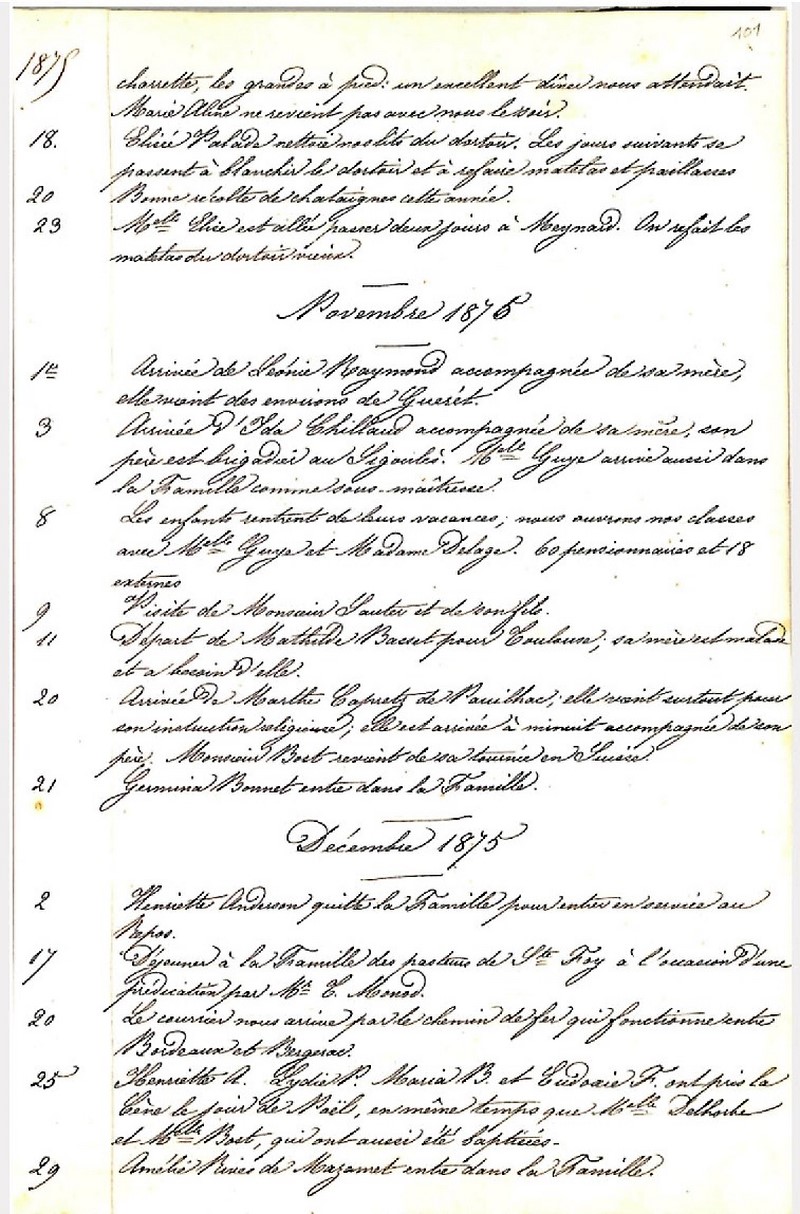 101
1875
charrette, les grandes à pied: un excellent dîner nous attendait.
Marie Aline ne revient pas avec nous le soir.
18. Elisé Valade nettoie nos lits du dortoir. Les jours suivants se
passent à blanchir le dortoir et à refaire matelas et paillasses
20 Bonne récolte de chataignes cette année.
23 Melle Elise est allée passer deux jours à Meynard. On refait les
matelas du dortoir vieux.
Novembre 1875
1er Arrivée de Léonie Raymond accompagnée de sa mère,
elle vient des environs de Guerét.
3 Arrivée d'Ida Chillaud accompagnée de sa mère, son
père est brigadier au Sigoulès. Melle Guye arrive aussi dans
la Famille comme sous-maîtresse.
8 Les enfants rentrent de leurs vacances; nous ouvrons nos classes
avec Melle Guye et Madame Delage. 60 pensionnaires et 18
externes
9 Visite de Monsieur Sauter et de son fils.
11 Départ de Mathilde Basset pour Toulouse; sa mère est malade
et a besoin d'elle.
20 Arrivée de Marthe Capretz de Pauilhac; elle vient surtout pour
son instruction religieuse; elle est arrivée à minuit accompagnée de son
père. Monsieur Bost revient de sa tournée en Suisse.
21 Germina Bonnet entre dans la Famille.
Décembre 1875
2 Henriette Anderson quitte la Famille pour entrer en service au
Repos.
17 Déjeuner à la Famille des pasteurs de Ste Foy à l'occasion d'une
prédication par Mr T. Monod.
20 Le courrier nous arrive par le chemin de fer qui fonctionne entre
Bordeaux et Bergerac.
25 Henriette A. Lydie P. Maria B. et Eudoxie F. ont pris la
Cène le jour de Noël, en même temps que Melle Delhorbe
et Melle Bost, qui ont aussi été baptisées.
29 Amélie Rives de Mazamet entre dans la Famille.